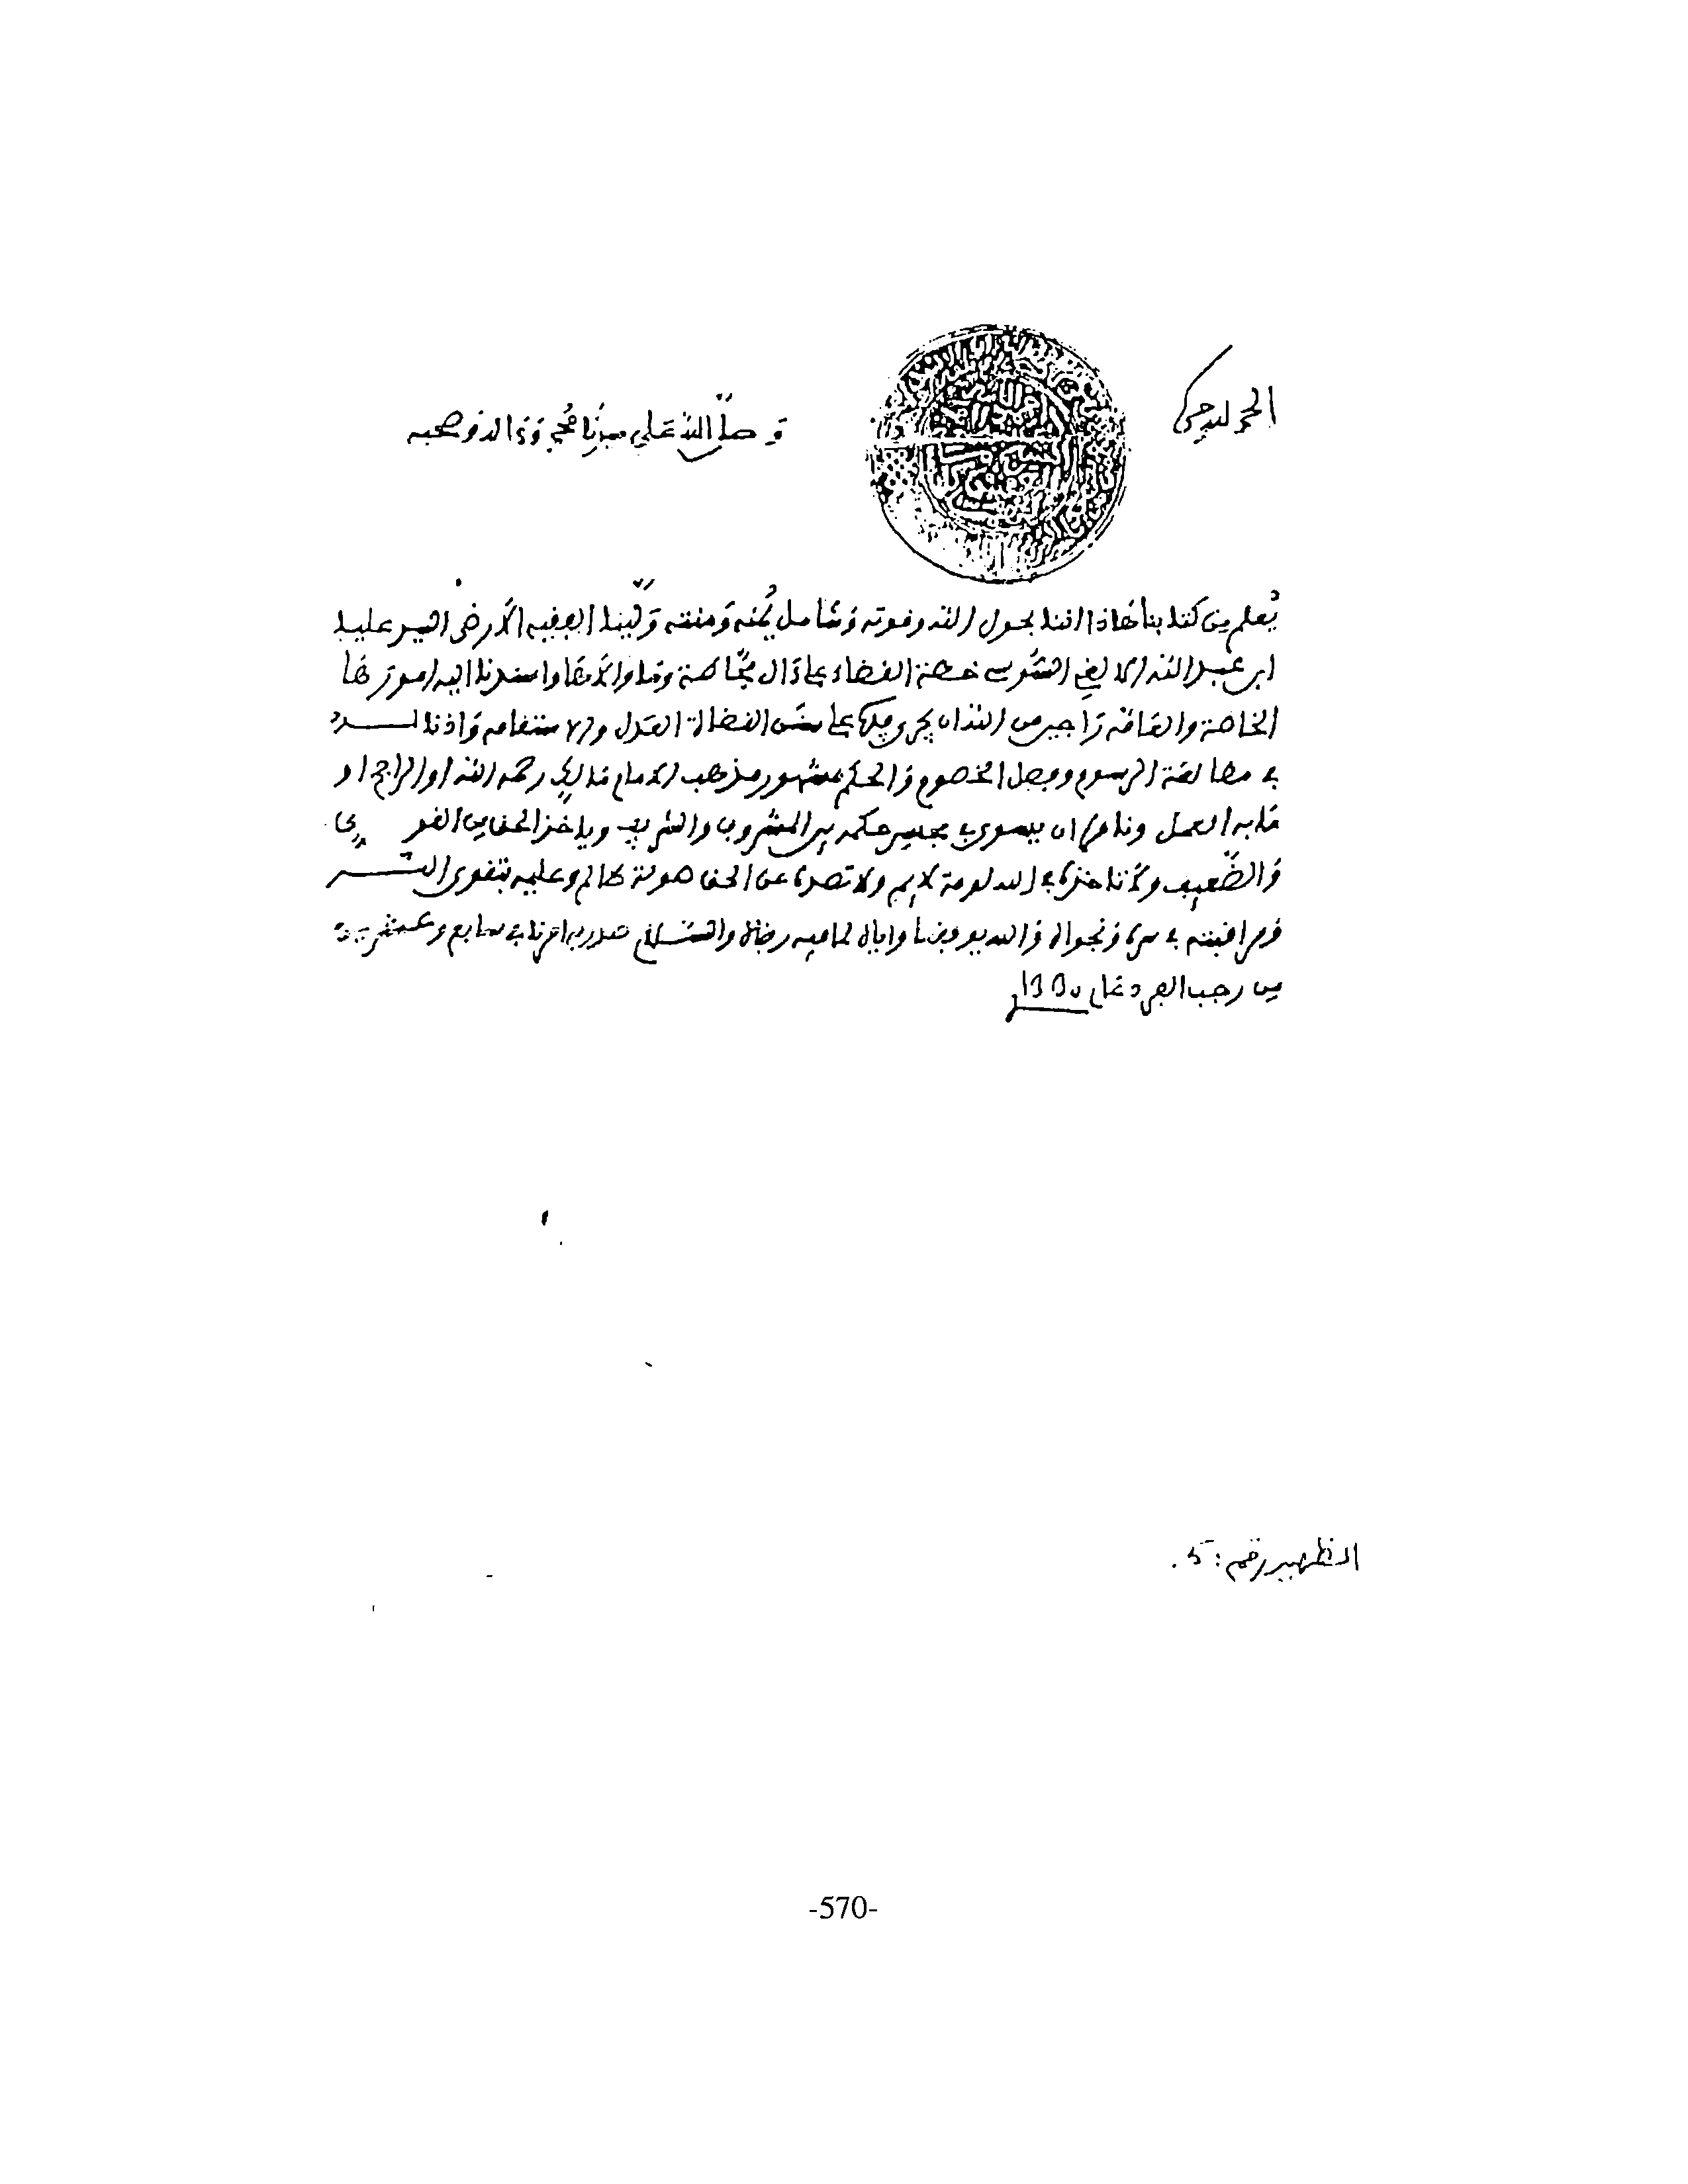 الحمد لله وحده
وصلى الله على سيدنا محمد وءاله وصحبه
يعلم من كتابنا هاذا اننا بحول الله وقوته وشامل يمنه ومنته ولينا الفقيه الأرضى السيد
ابن عبد الله الالغي السوسي خطة القضاء وما والاها واسندنا اليه امورها
الخاصة والعامة راجين من الله ان يجري على سنن القضاة العدل والاستقامة واذنا لـــه
في مطالعة الرسوم وفصل الخصوم والحكم بمشهور مذهب الامام مالك رحمه الله او الراجح او
مابه العمل ونامره ان يسوي في مجلس حكمه بين المشروف والشريف وياخذ الحق من القوي
والضعيف ولا تاخذه في الله لومة لايم ولا تصده عن الحق صولة ظالم وعليه بتقوى اللـــه
ومراقبته في سره ونجواه والله يوفقنا واياه لما فيه رضاه والســلام صدر به امرنا في سابع وعشرين
من رجب الفرد عام 1350
الظهير رقم: 5.
-570-